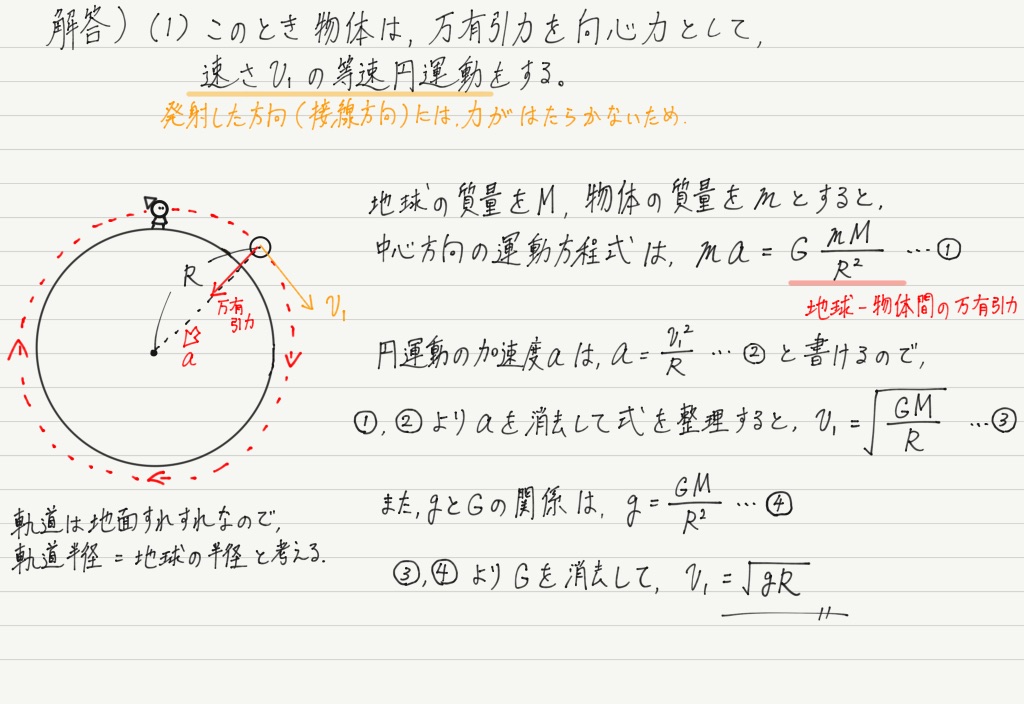 解答) (1) このとき物体は, 万有引力を向心力として,
速さ v₁ の等速円運動をする。
発射した方向(接線方向)には, 力がはたらかないため.
地球の質量をM, 物体の質量をmとすると,
中心方向の運動方程式は, ma = G mM/R² … ①
地球-物体間の万有引力
R
万有
引力
v₁
a
円運動の加速度aは, a = v₁²/R … ② と書けるので,
①, ② よりaを消去して式を整理すると, v₁ = √(GM/R) … ③
また, gとGの関係は, g = GM/R² … ④
軌道は地面すれすれなので,
軌道半径 = 地球の半径と考える.
③, ④ よりGを消去して, v₁ = √gR